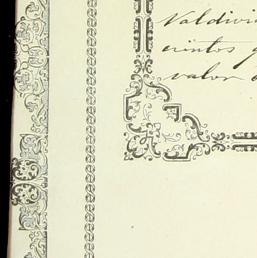 Valdivi
cientos q
valor d